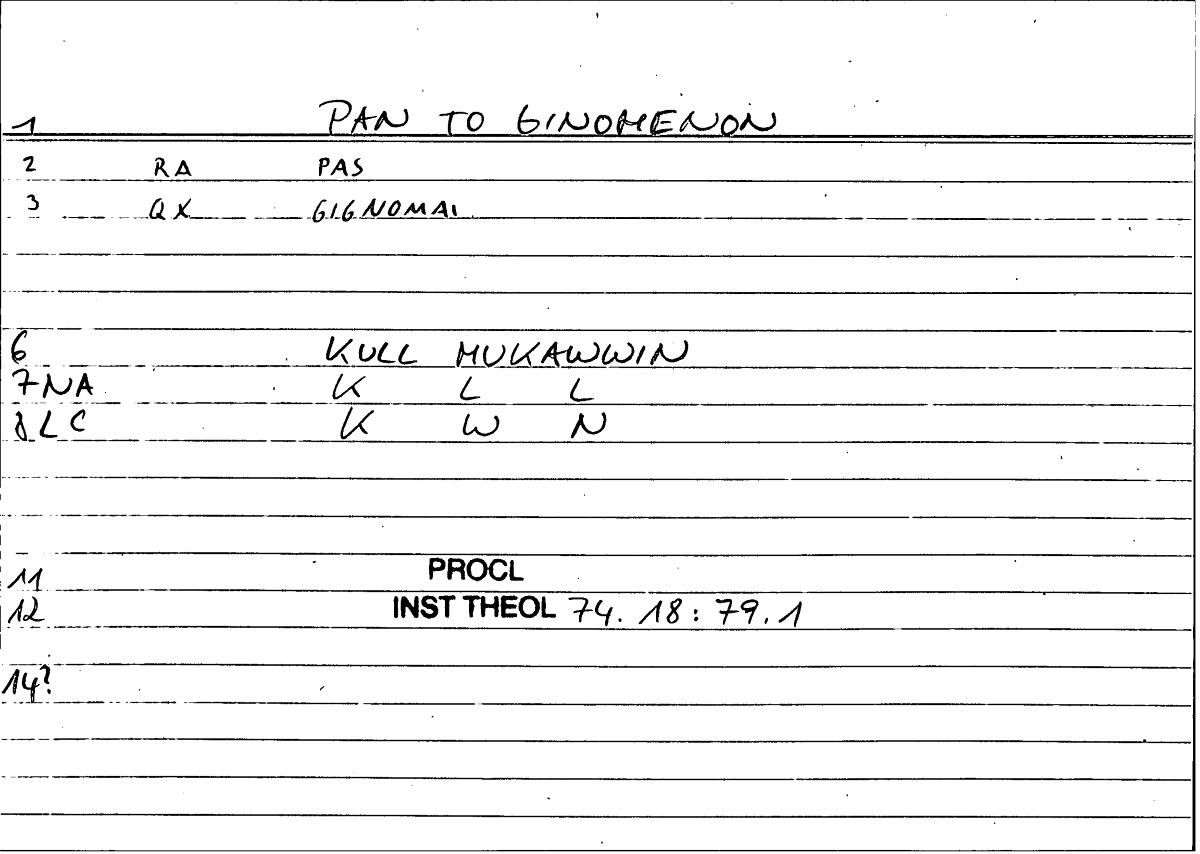 1 PAN TO GINOMENON
2 RA PAS
3 QX GIGNOMAI
6 KULL MUKAWWIN
7 NA K L L
8 LC K W N
11 PROCL
12 INST THEOL 74. 18: 79.1
14?